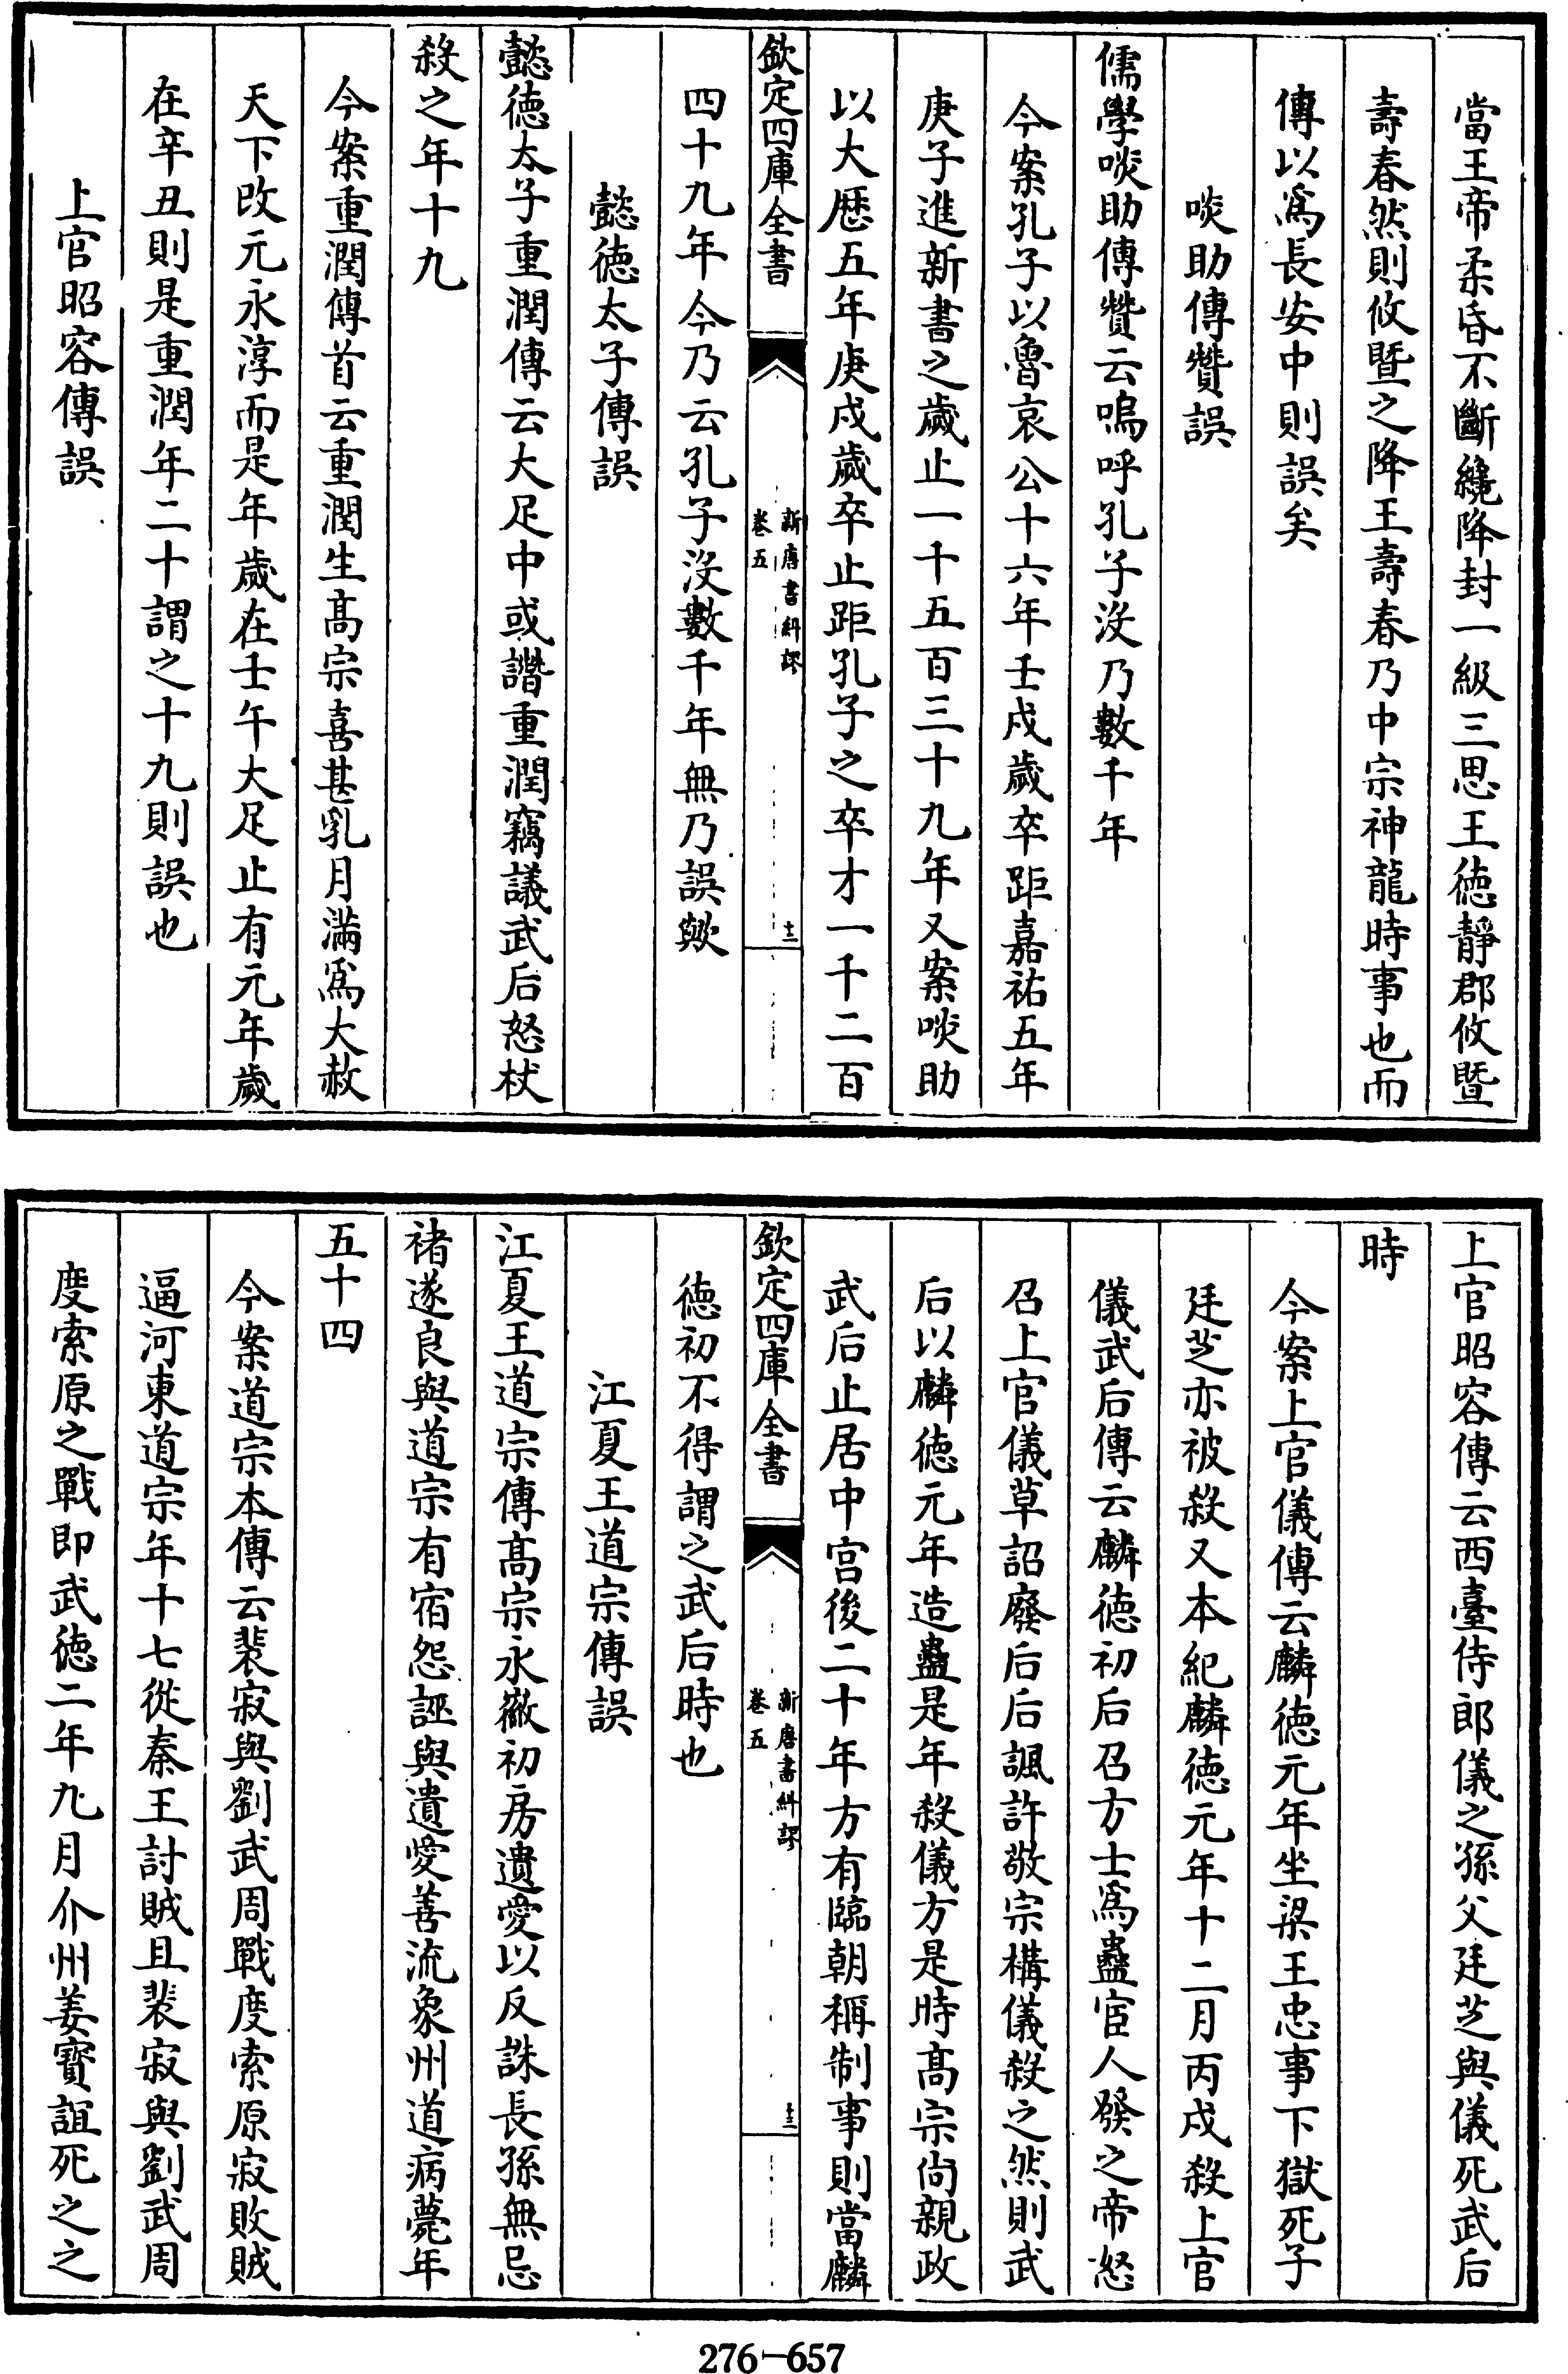 當王帝柔昏不斷纔降封一級三思王徳靜郡攸暨
壽春然則攸暨之降王壽春乃中宗神龍時事也而
傳以爲長安中則誤矣
啖助傳贊誤
儒學啖助傳贊云嗚呼孔子沒乃數千年
今案孔子以魯哀公十六年壬戌歲卒距嘉祐五年
庚子進新書之歲止一千五百三十九年又案啖助
以大歷五年庚戌歲卒止距孔子之卒才一千二百
欽定四庫全書
新唐書糾謬
卷五
十二
四十九年今乃云孔子沒數千年無乃誤歟
懿徳太子傳誤
懿徳太子重潤傳云大足中或譖重潤竊議武后怒杖
殺之年十九
今案重潤傳首云重潤生髙宗喜甚乳月滿爲大赦
天下改元永淳而是年歲在壬午大足止有元年歲
在辛丑則是重潤年二十謂之十九則誤也
上官昭容傳誤
上官昭容傳云西臺侍郎儀之孫父廷芝與儀死武后
時
今案上官儀傳云麟徳元年坐梁王忠事下獄死子
廷芝亦被殺又本紀麟徳元年十二月丙戌殺上官
儀武后傳云麟徳初后召方士爲蠱宦人發之帝怒
召上官儀草詔廢后后諷許敬宗構儀殺之然則武
后以麟徳元年造蠱是年殺儀方是時髙宗尚親政
武后止居中宫後二十年方有臨朝稱制事則當麟
欽定四庫全書
新唐書糾謬
卷五
十三
徳初不得謂之武后時也
江夏王道宗傳誤
江夏王道宗傳髙宗永徽初房遺愛以反誅長孫無忌
褚遂良與道宗有宿怨誣與遺愛善流象州道病薨年
五十四
今案道宗本傳云裴寂與劉武周戰度索原寂敗賊
逼河東道宗年十七從秦王討賊且裴寂與劉武周
度索原之戰即武徳二年九月介州姜寶誼死之之
276-657